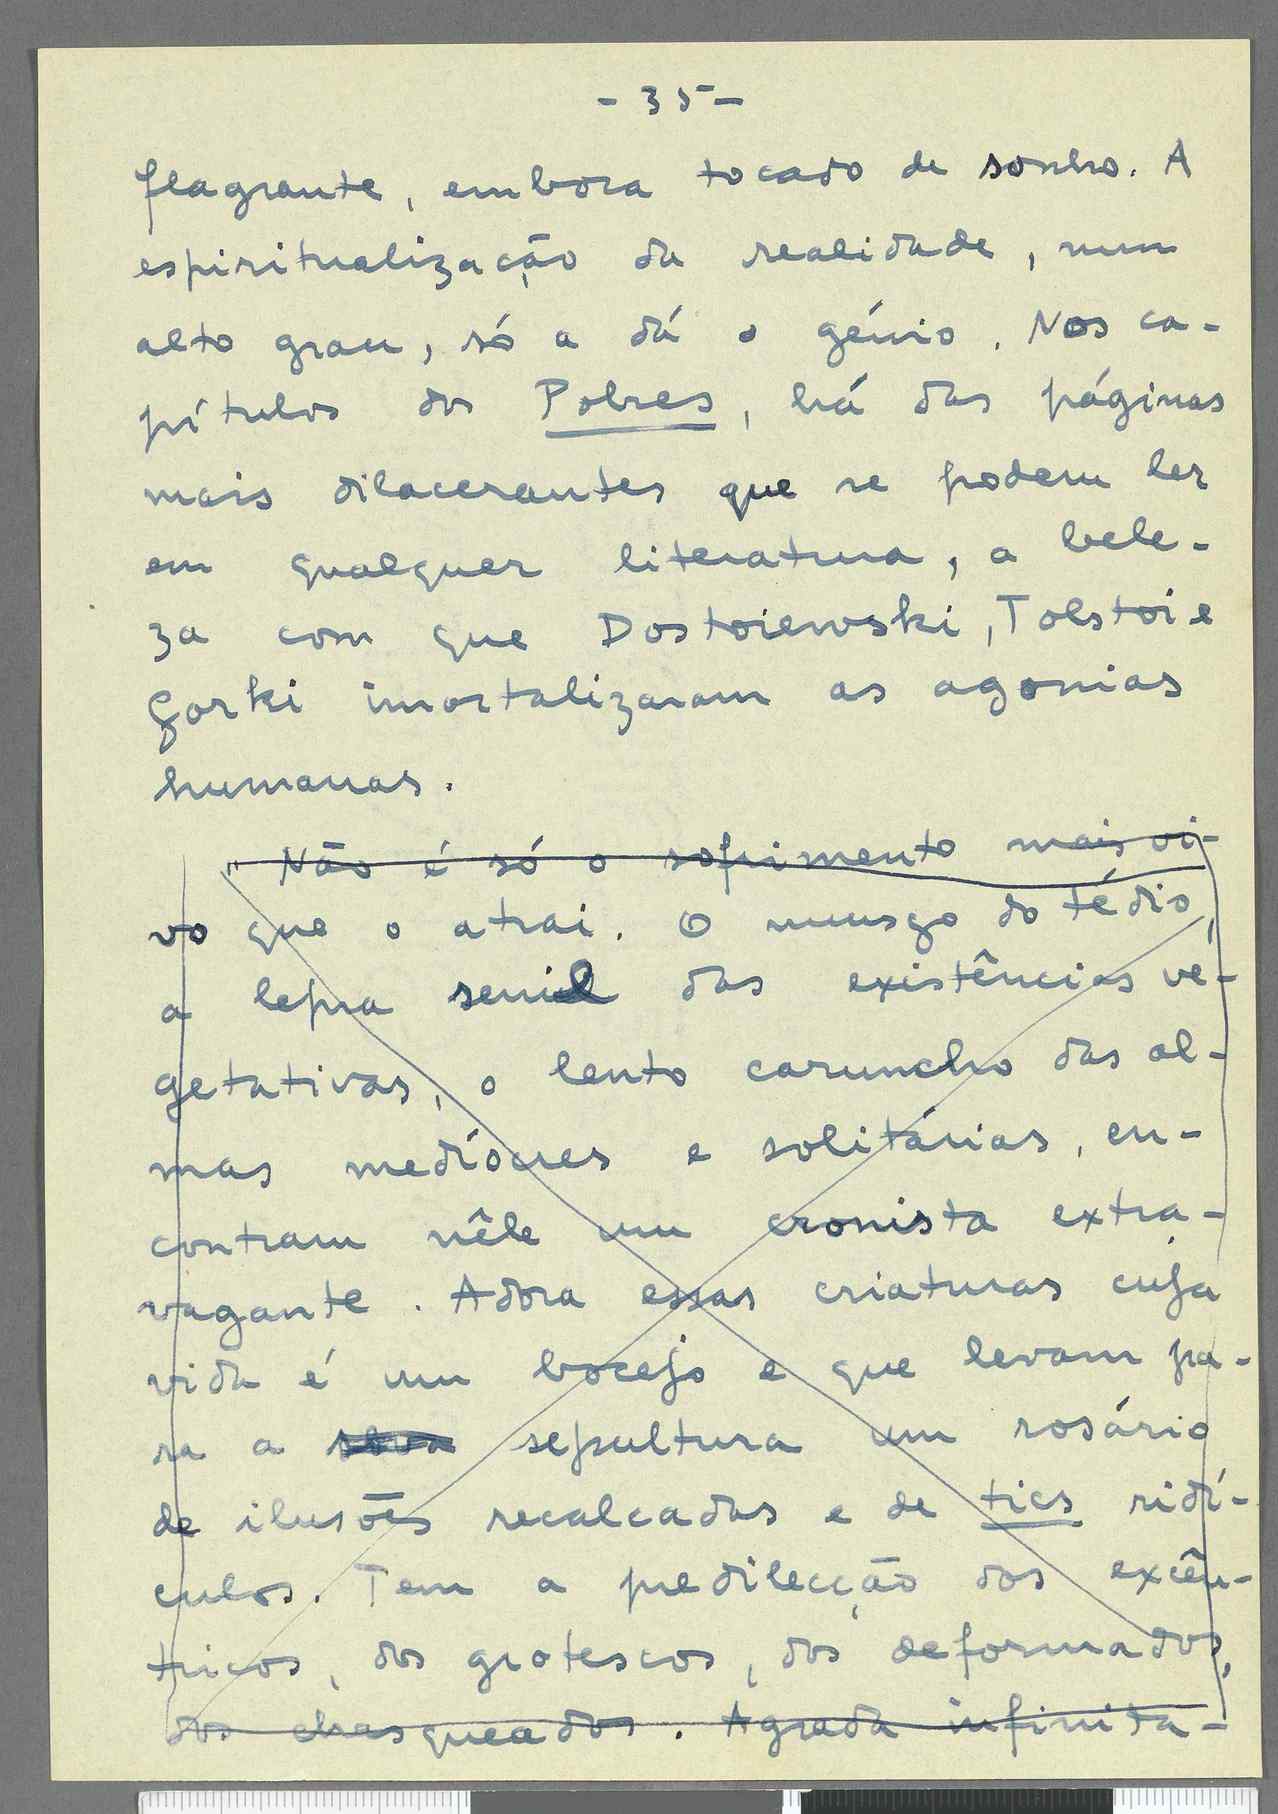 - 35 -
flagrante, embora tocado de sonho. A
espiritualização da realidade, num
alto grau, só a dá o génio. Nos ca-
pítulos dos Pobres, há das páginas
mais dilacerantes que se podem ler
em qualquer literatura, a bele-
za com que Dostoiewski, Tolstoi e
Gorki imortalizaram as agonias
humanas.
" Não é só o sofrimento mais vi-
vo que o atrai. O musgo do tédio,
a lepra senil das existências ve-
getativas, o lento caruncho das al-
mas medíocres e solitárias, en-
contram nêle um cronista extra-
vagante. Adora essas criaturas cuja
vida é um bocejo e que levam pa-
ra a sepultura um rosário
de ilusões recalcadas e de tics ridí-
culos. Tem a predilecção dos excên-
tricos, dos grotescos, dos deformados,
dos chasqueados. Agrada infinita-